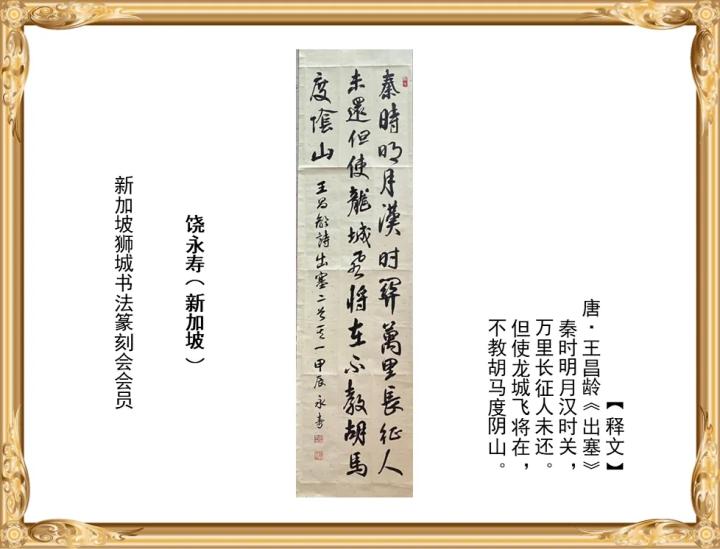 【释文】
唐·王昌龄《出塞》
秦时明月汉时关，
万里长征人未还。
但使龙城飞将在，
不教胡马度阴山。
秦時明月漢时關萬里長征人
未還但使龍城飛將在不教胡馬
度陰山 王昌齡詩出塞二首其一 甲辰 永寿
饶永寿（新加坡）
新加坡狮城书法篆刻会会员